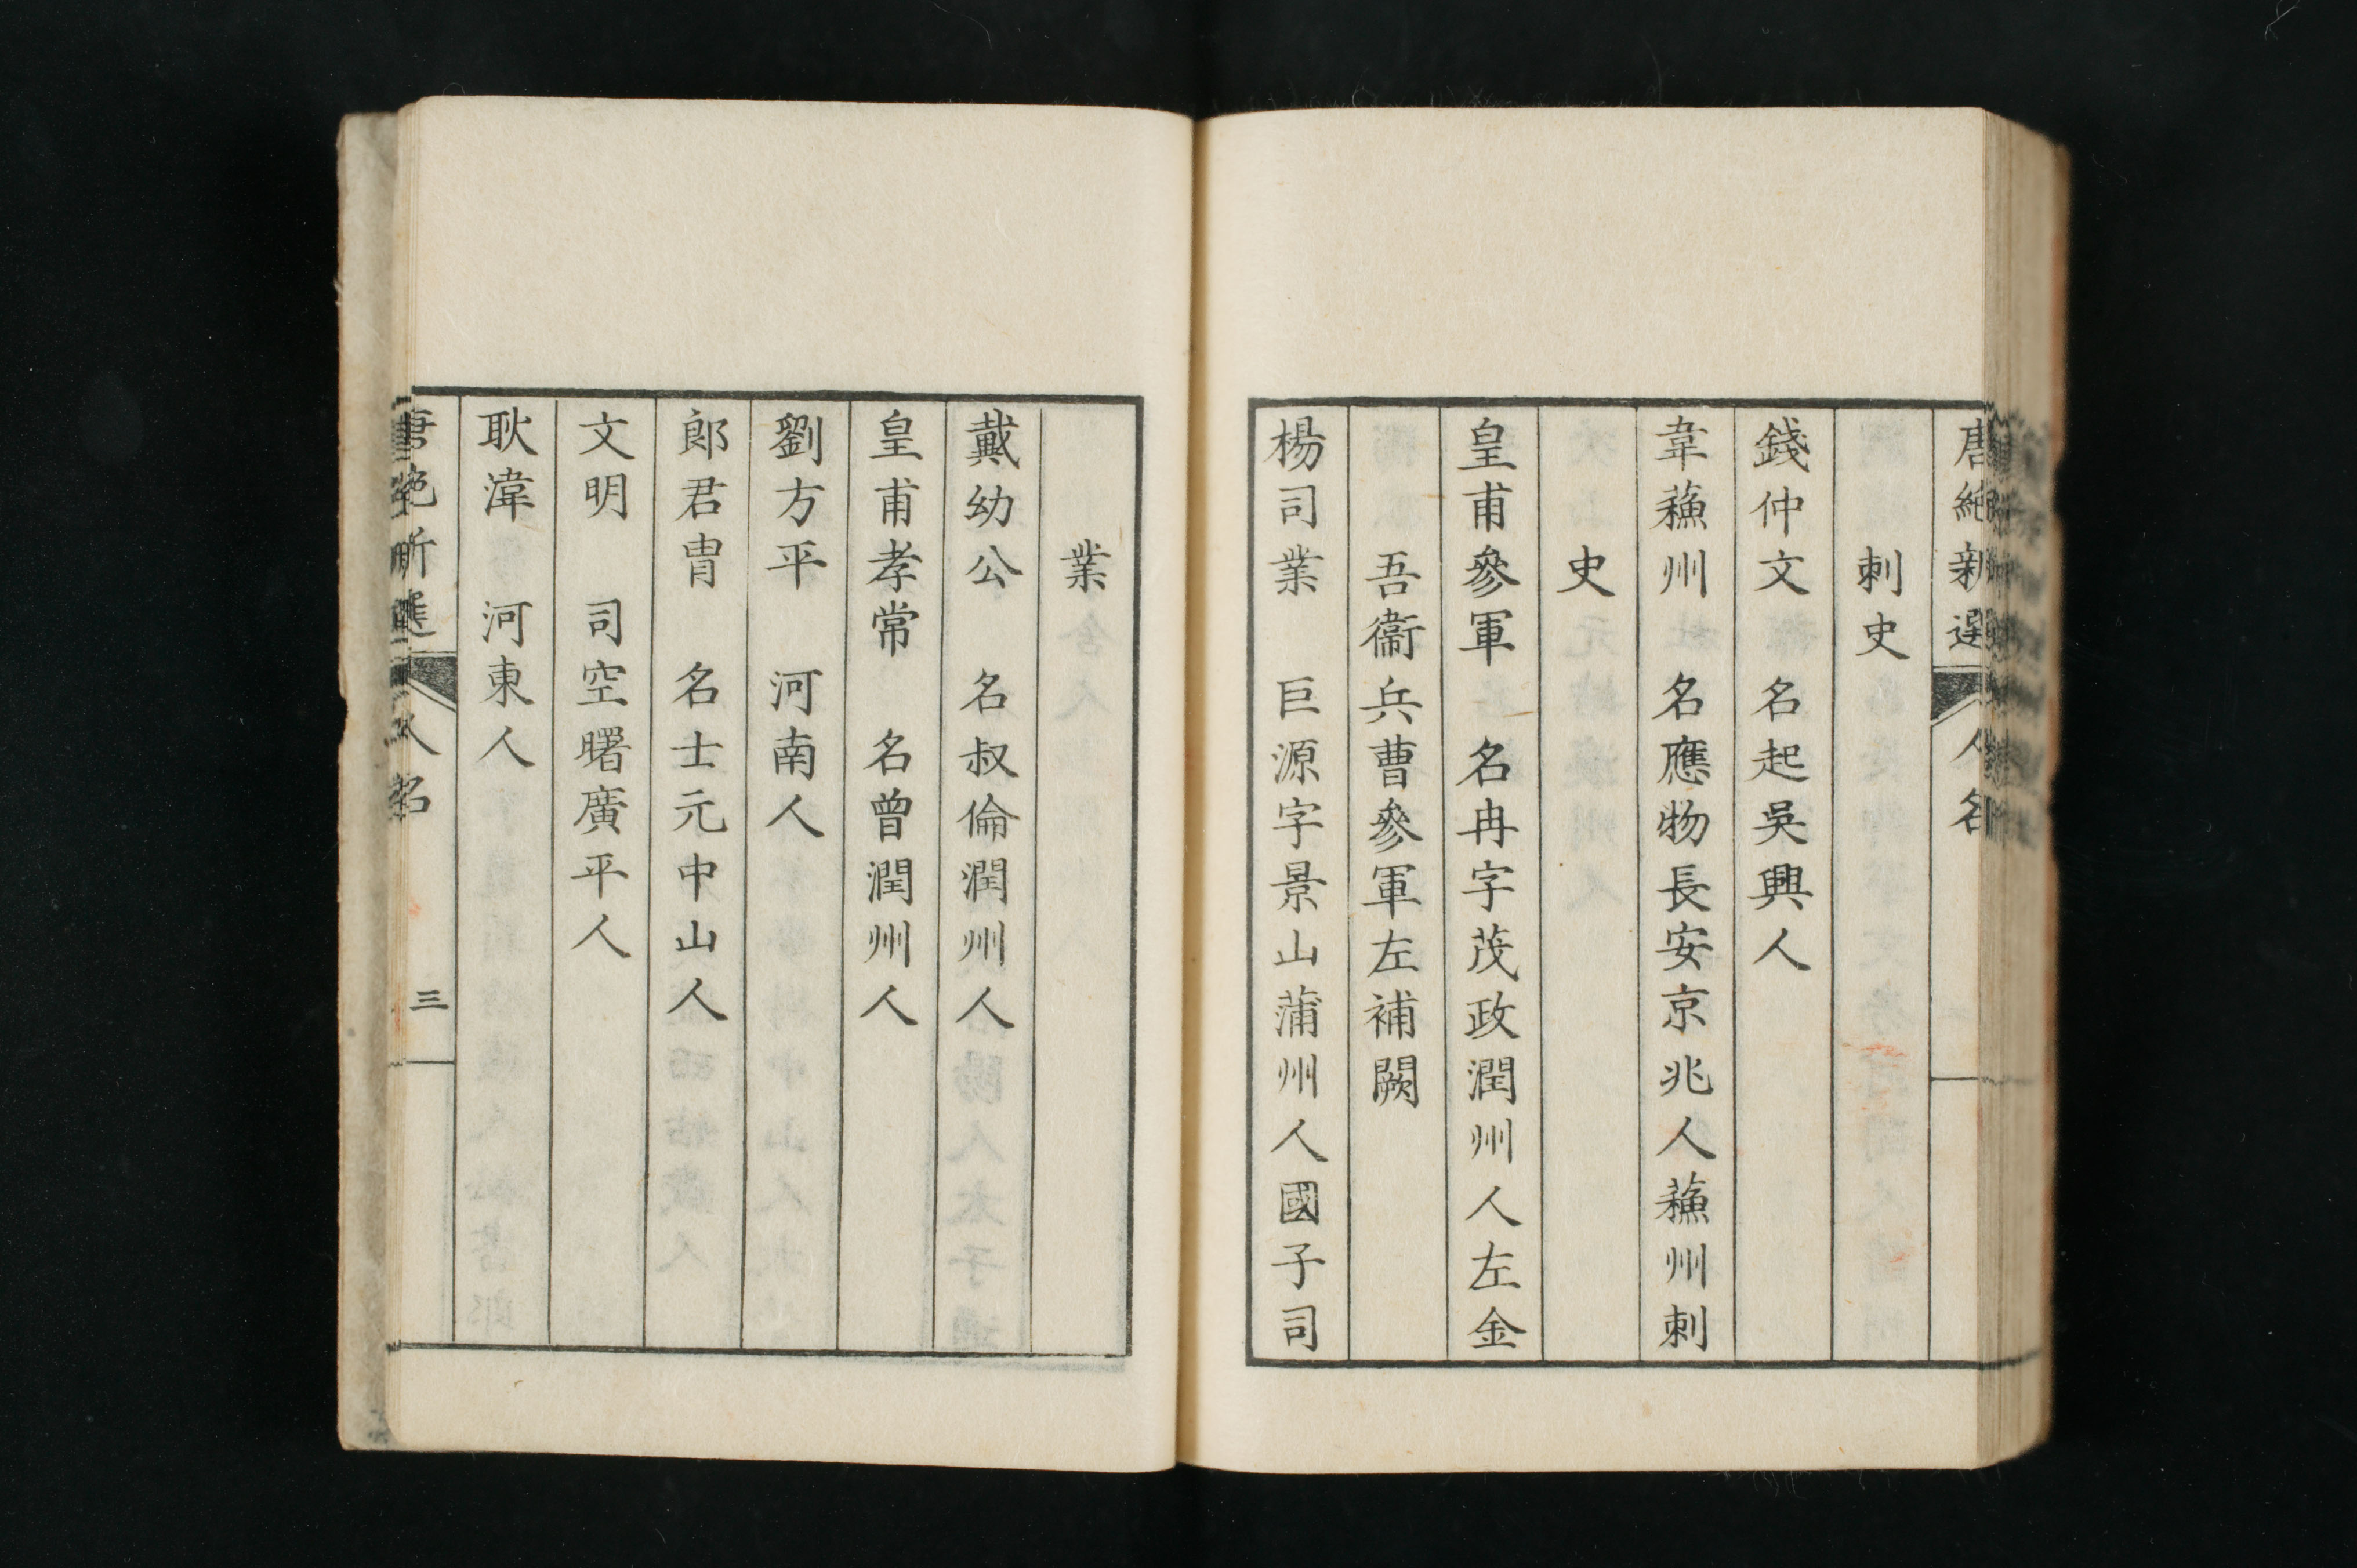 唐絶新選 人名
刺史
錢仲文 名起吳興人
韋蘓州 名應物長安京兆人蘓州刺
史
皇甫參軍 名冉字茂政潤州人左金
吾衞兵曹參軍左補闕
楊司業 巨源字景山蒲州人國子司
業
戴幼公 名叔倫潤州人
皇甫孝常 名曾潤州人
劉方平 河南人
郎君胄 名士元中山人
文明 司空曙廣平人
耿湋 河東人
唐絶新選 人名 三